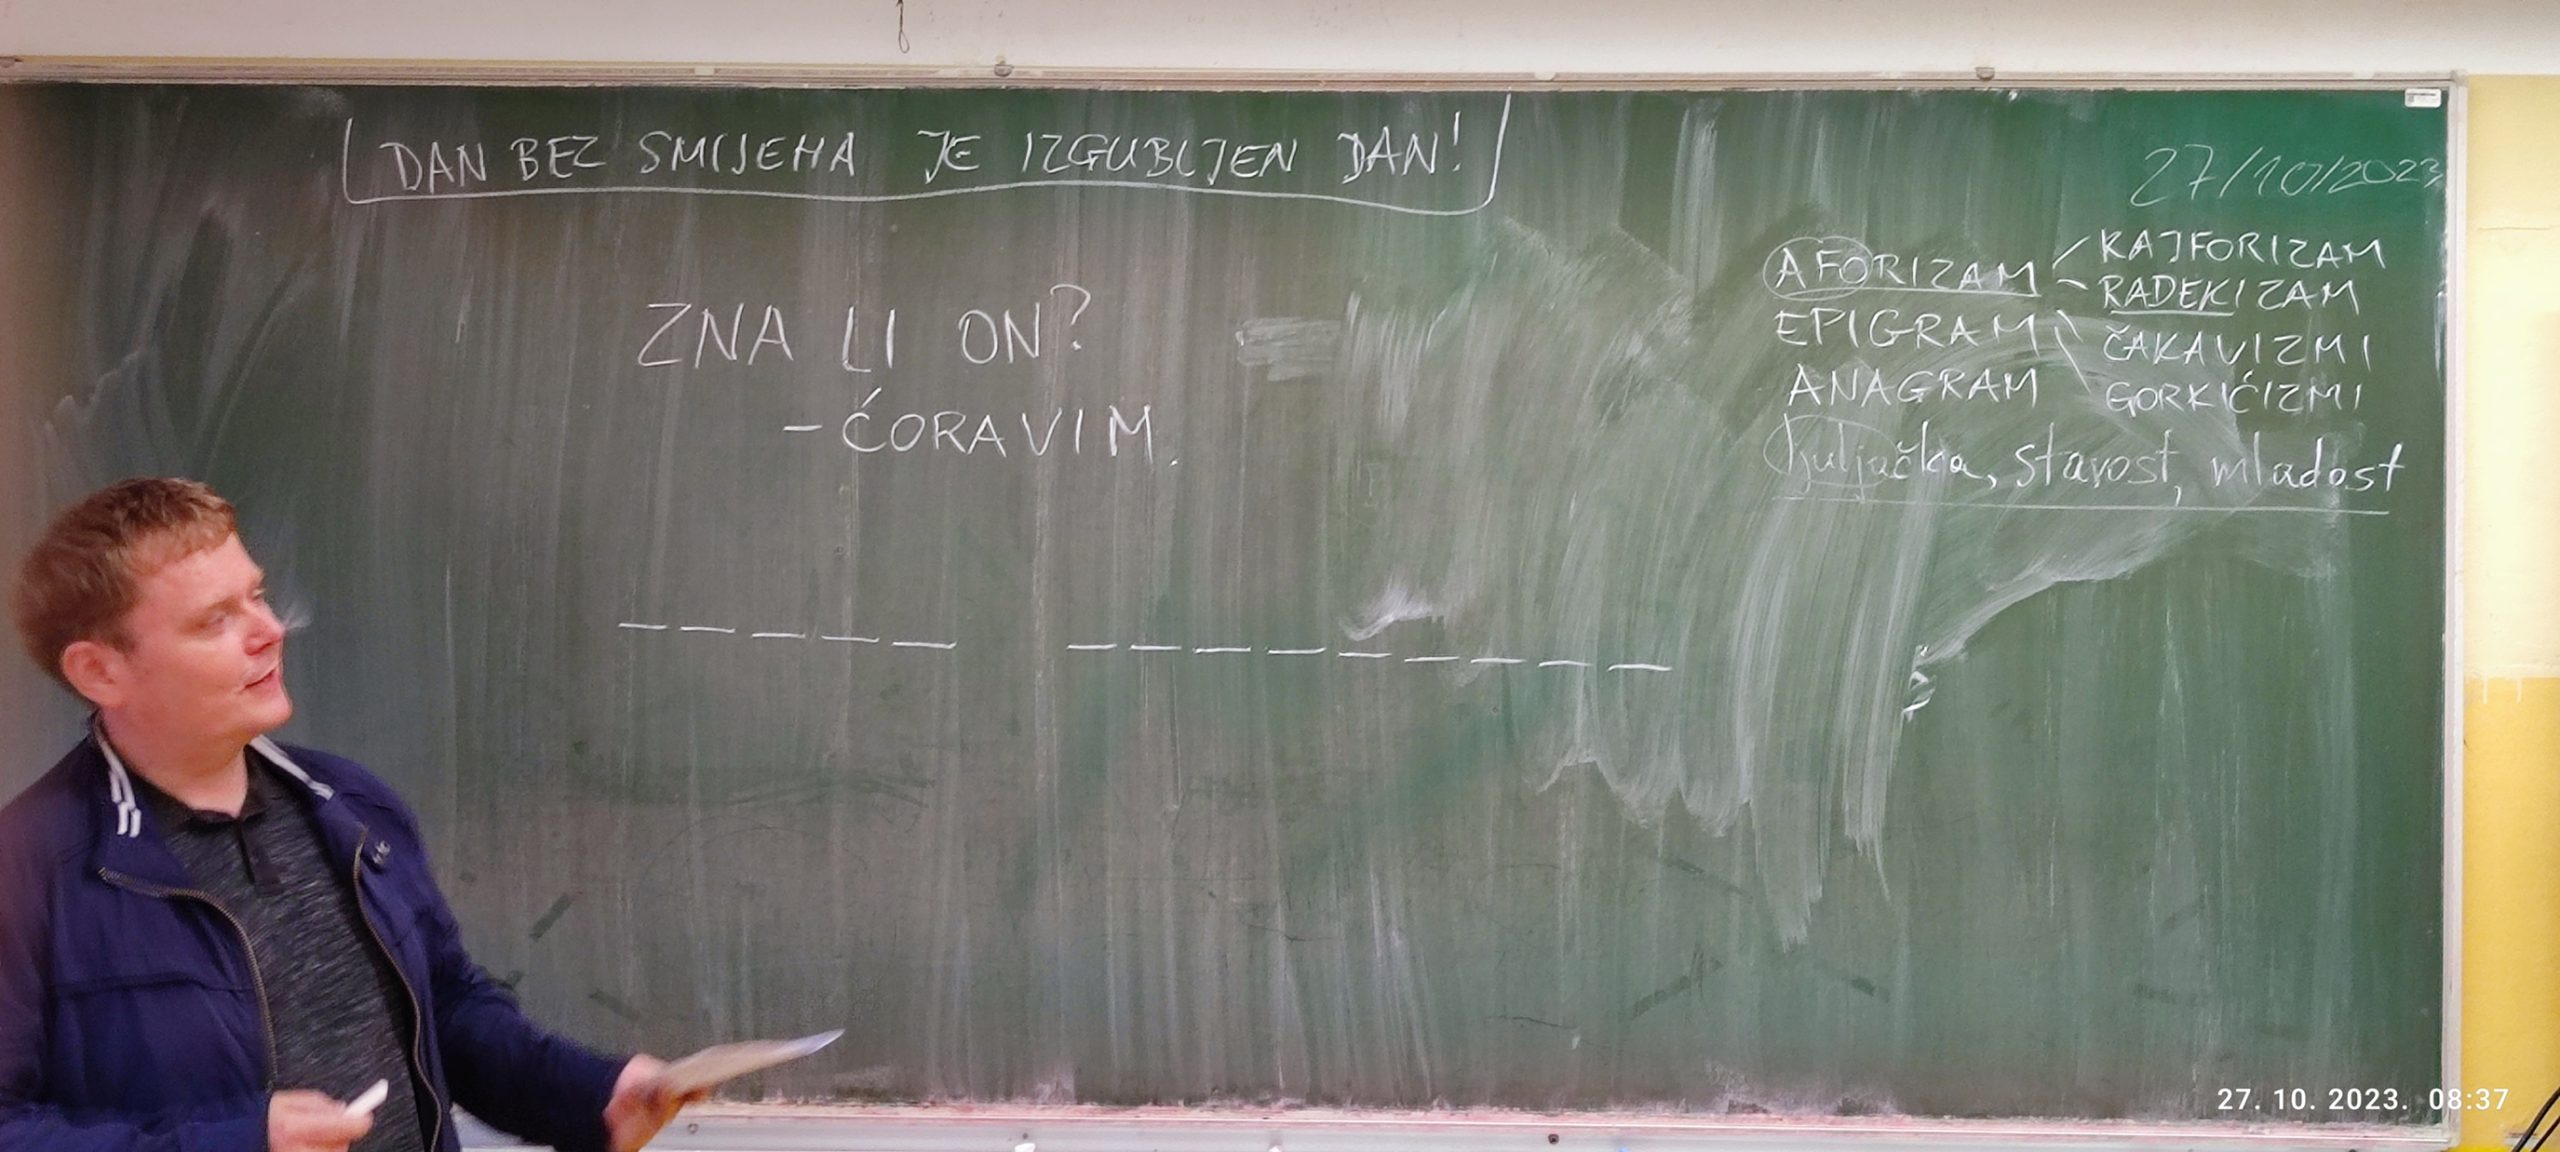 DAN BEZ SMIJEHA JE IZGUBLJEN DAN!
27/10/2023
ZNA LI ON?
- ĆORAVIM.
AFORIZAM
KAJFORIZAM
RADEKIZAM
EPIGRAM
ČAKAVIZMI
ANAGRAM
GORKIĆIZMI
huljačka, starost, mladost
27. 10. 2023. 08:37